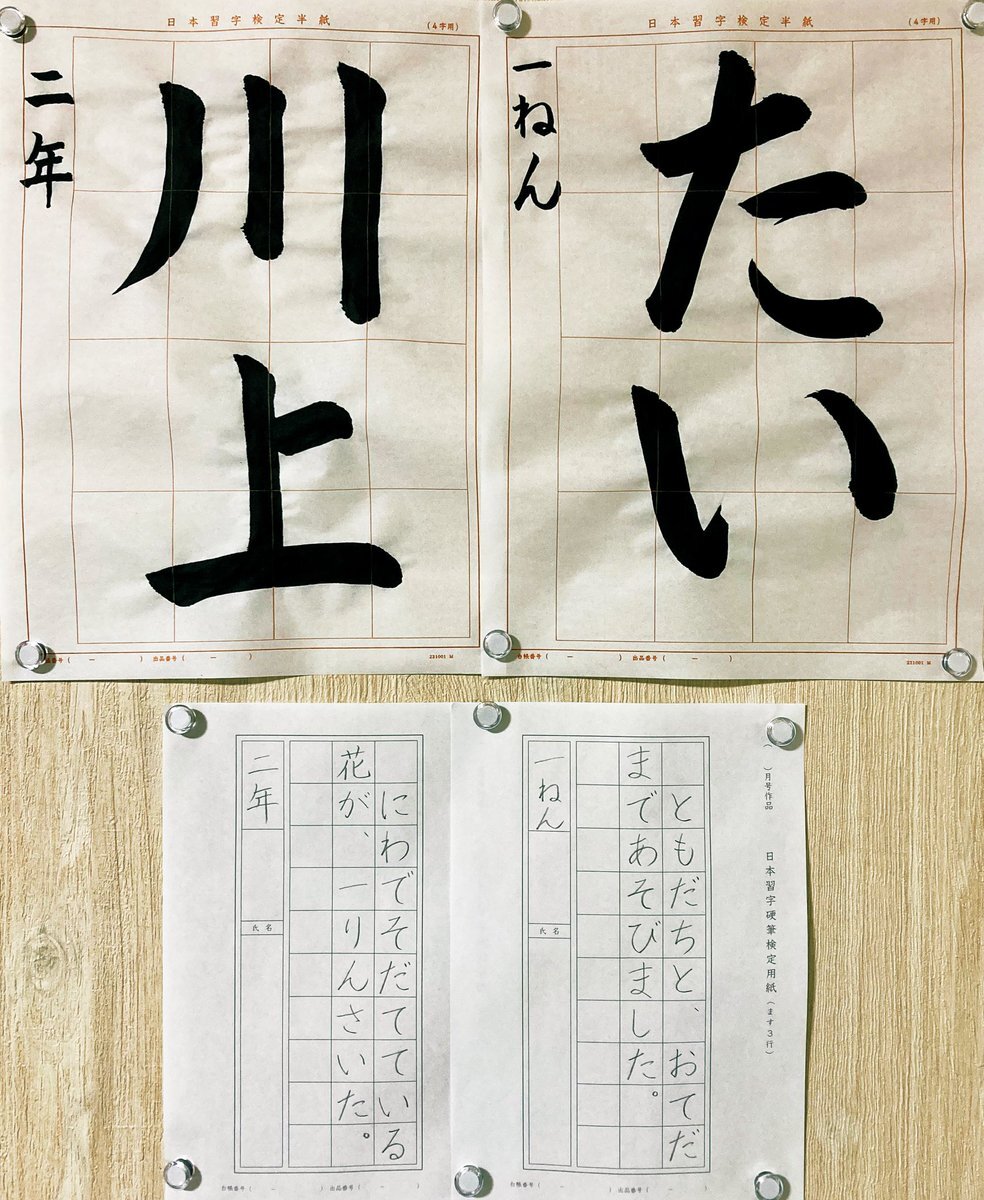 日本習字検定半紙 （4字用）
たい
一ねん
台帳番号（　－　） 出品番号（　－　） 231001 M
日本習字検定半紙 （4字用）
川上
二年
番号（　－　） 出品番号（　－　） 231001 M
（　）月号作品 日本習字硬筆検定用紙（ます3行）
ともだちと、おてだ
まであそびました。
一ねん
氏名
台帳番号（　－　） 出品番号（　－　）
にわでそだてている
花が、一りんさいた。
二年
氏名
台帳番号（　－　） 出品番号（　－　）